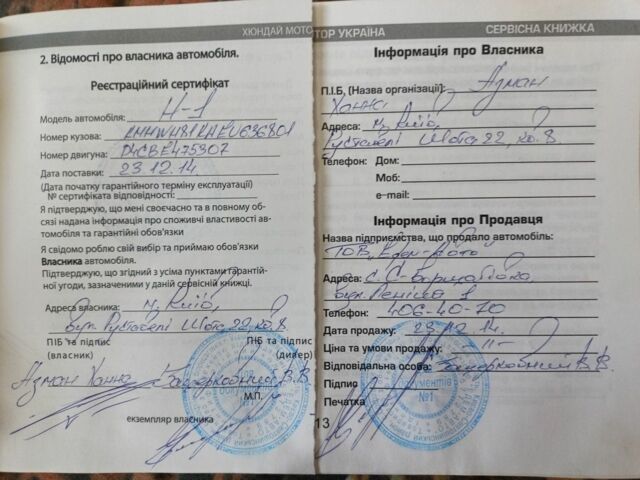 ХЮНДАЙ МОТОР УКРАЇНА
СЕРВІСНА КНИЖКА
2. Відомості про власника автомобіля.
Реєстраційний сертифікат
Модель автомобіля: H-1
Номер кузова: KMHWH81KHEU636801
Номер двигуна: D4CBE475307
Дата поставки: 23.12.14.
(Дата початку гарантійного терміну експлуатації)
№ сертифіката відповідності:
Я підтверджую, що мені своєчасно та в повному об-
сязі надана інформація про споживчі властивості ав-
томобіля та гарантійні обов'язки
Я свідомо роблю свій вибір та приймаю обов'язки
Власника автомобіля.
Підтверджую, що згідний з усіма пунктами гарантій-
ної угоди, зазначеними у даній сервісній книжці.
Адреса власника: м. Київ,
вул. Руставелі Шота 22, кв. 8
ПІБ та підпис
(власник)
ПІБ та підпис
(дилер)
Азман Ханна
В.В.
М.П.
екземпляр власника
Інформація про Власника
П.І.Б, (Назва організації): Азман
Ханна
Адреса: м. Київ,
Руставелі Шота 22, кв. 8
Телефон: Дом:
Моб:
e-mail:
Інформація про Продавця
Назва підприємства, що продало автомобіль:
ТОВ
Адреса: с. С-Борщагівка
вул. Леніна 1
Телефон: 406-40-70
Дата продажу: 23.12.14.
Ціна та умови продажу: -11-
Відповідальна особа: В.В.
Підпис
Печатка
документів
№1
13